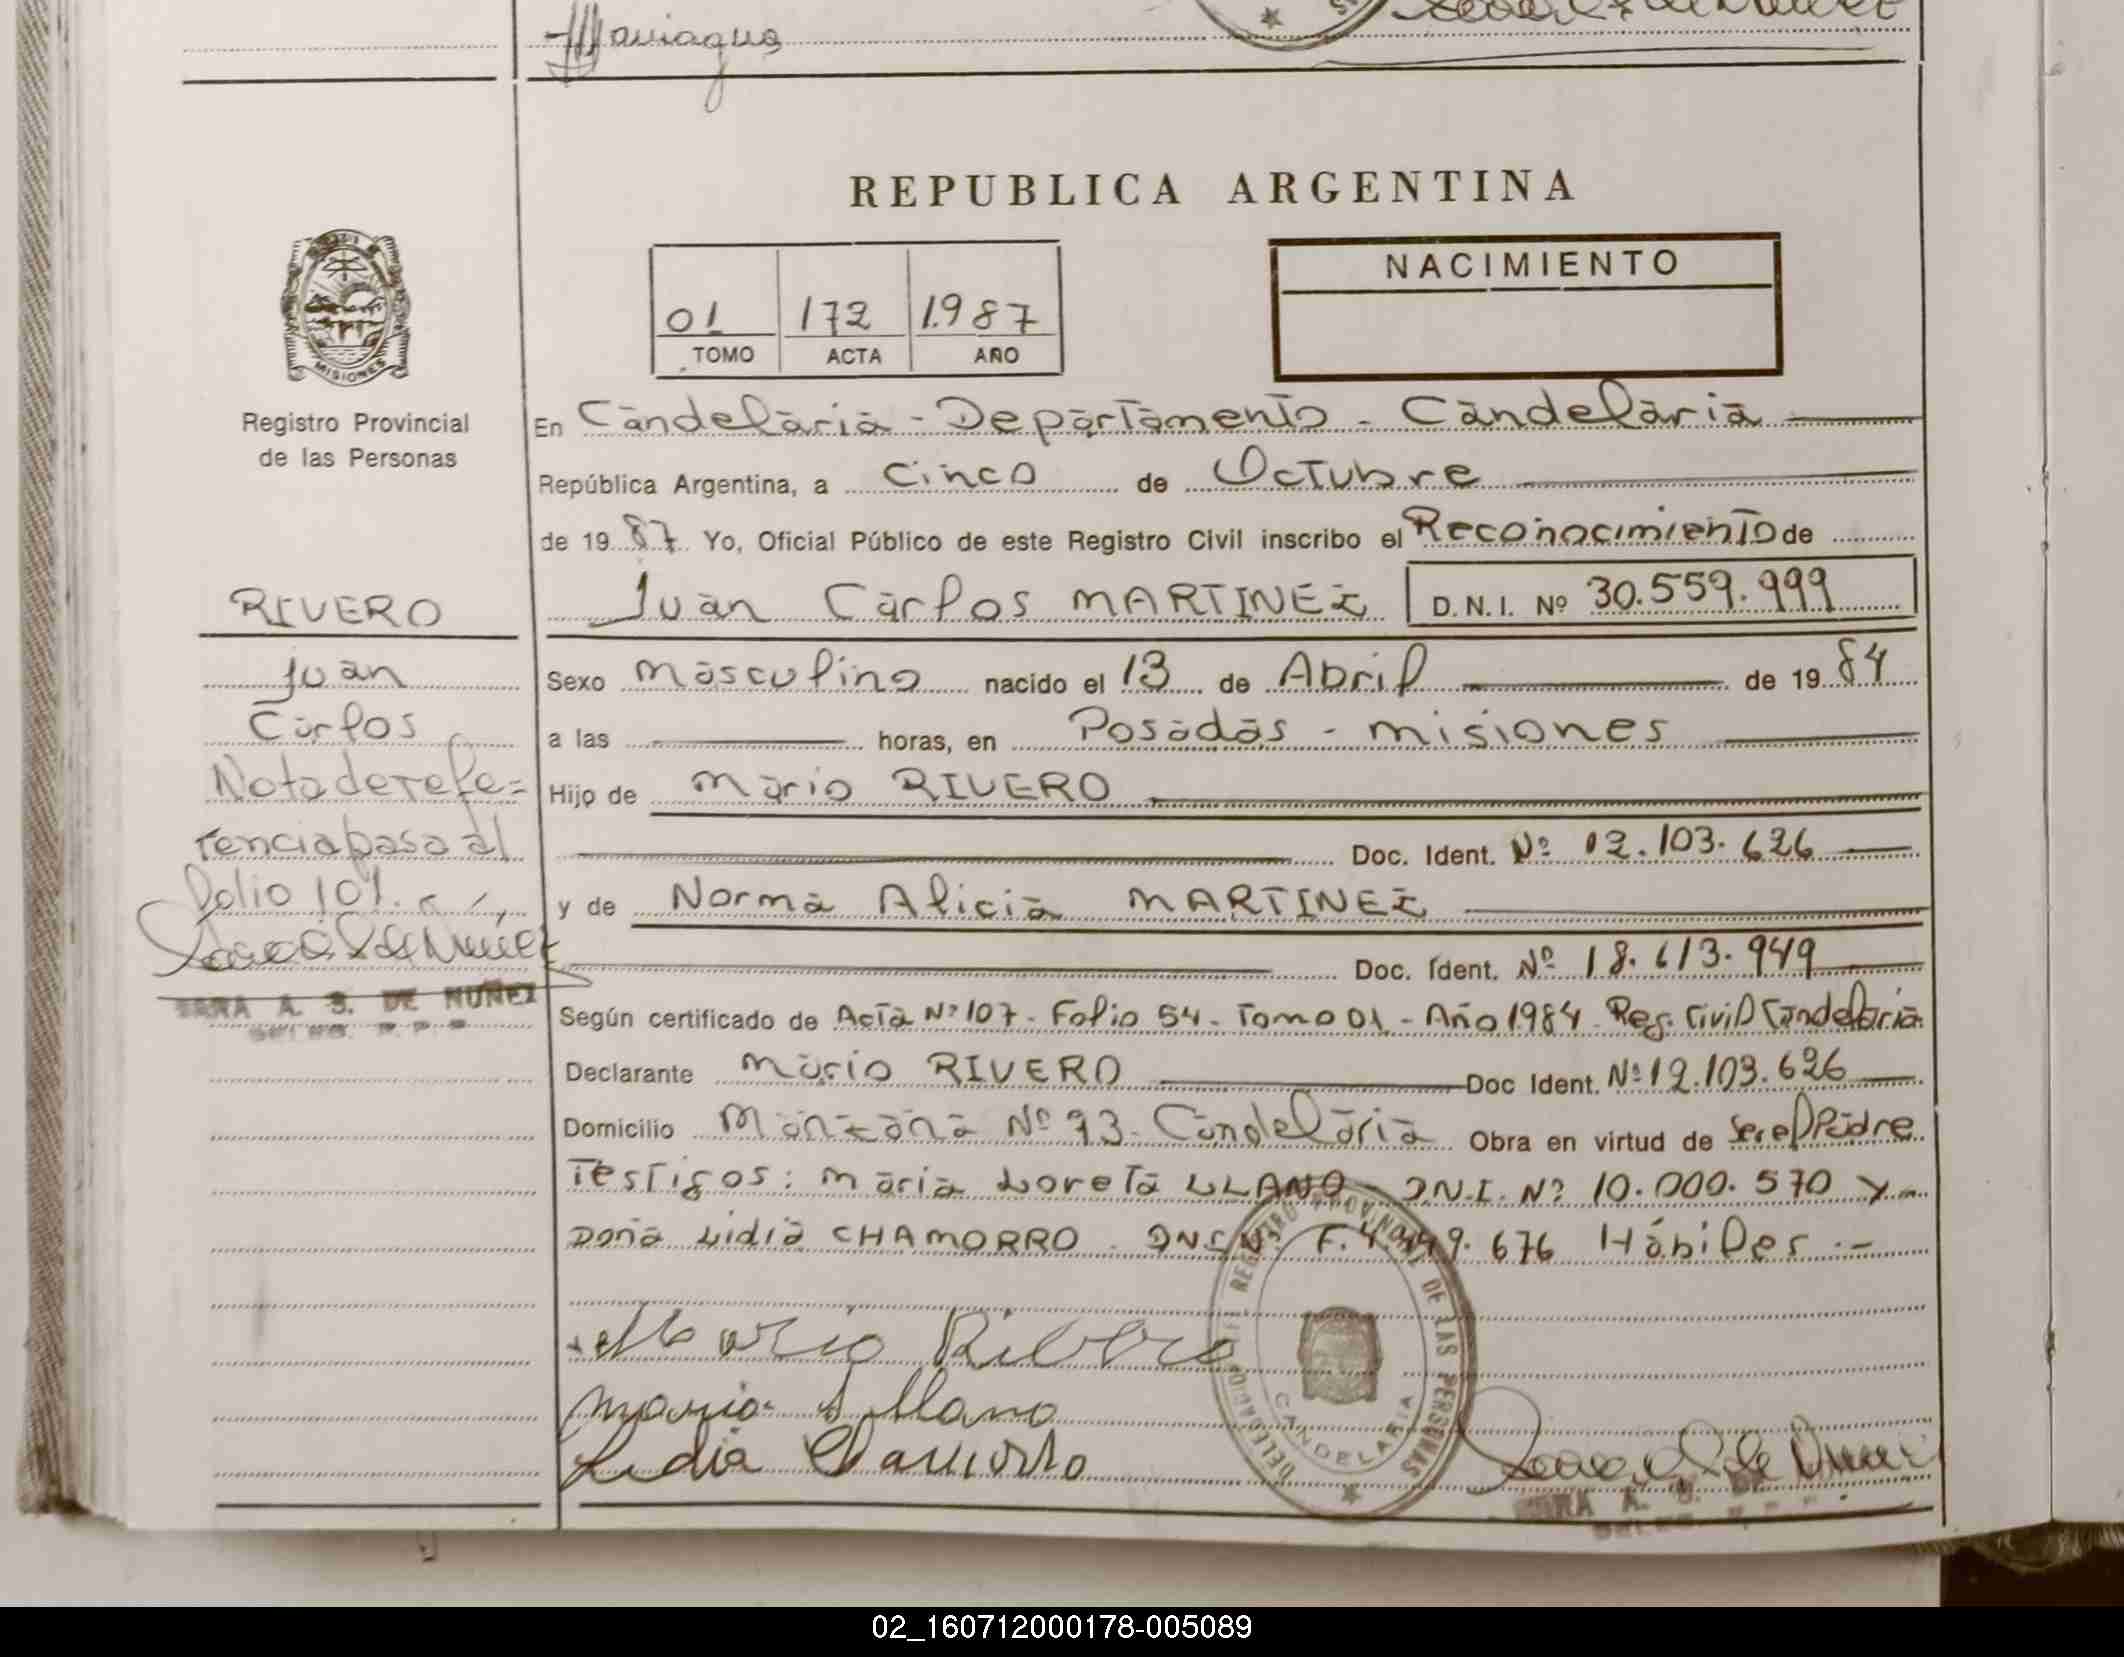 REPUBLICA ARGENTINA
NACIMIENTO
01 172 1.987
TOMO ACTA AÑO
MISIONES
Registro Provincial
de las Personas
En Candelaria - Departamento - Candelaria
República Argentina, a Cinco de Octubre
de 19 87 Yo, Oficial Público de este Registro Civil inscribo el Reconocimiento de
Juan Carlos MARTINEZ D.N.I. Nº 30.559.999
RIVERO
Juan
Carlos
Nota de refe=
rencia pasa al
folio 101.
SARA A. S. DE NUÑEZ
Sexo masculino nacido el 13 de Abril de 19 84
a las horas, en Posadas - misiones
Hijo de Mario RIVERO
Doc. Ident. Nº 12.103.626
y de Norma Alicia MARTINEZ
Doc. Ident. Nº 18.613.949
Según certificado de Acta Nº 107 - Folio 54 - Tomo 01 - Año 1984 - Reg. Civil Candelaria
Declarante Mario RIVERO Doc Ident. Nº 12.103.626
Domicilio Manzana Nº 93 - Candelaria Obra en virtud de ser el Padre
Testigos: Maria Loreta LLANO - D.N.I. Nº 10.000.570 y
Doña Lidia CHAMORRO - F. 676 Hábiles .-
Mario Rivero
Maria L Llano
Lidia Chamorro
DELEGACION DEL REGISTRO PROVINCIAL DE LAS PERSONAS
CANDELARIA
SARA A. S. DE
02_160712000178-005089